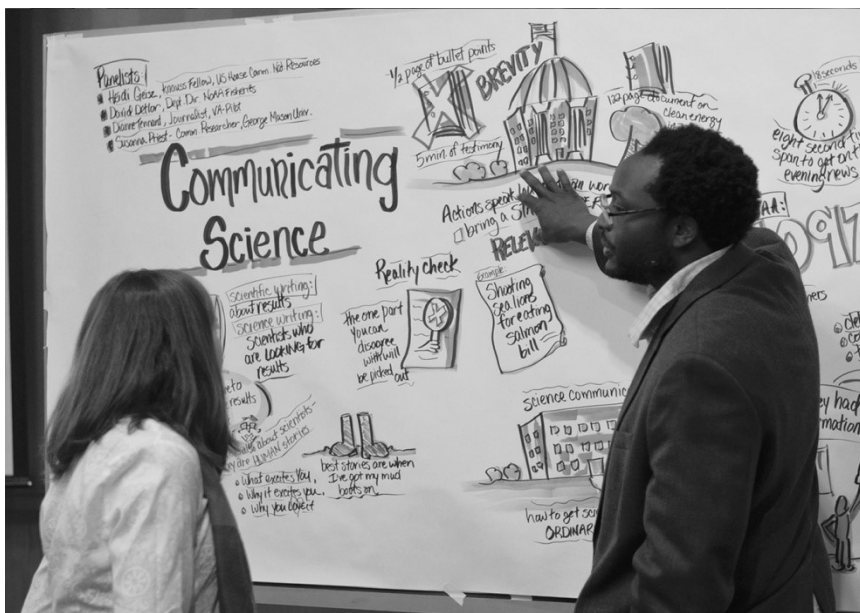 Panelists!
Heidi Geisz, Knauss Fellow, US House Comm. Nat. Resources
David Detlor, Dept. Dir. NOAA Fisheries
Dianne Tennant, Journalist, VA-Pilot
Susanna Priest - Comm. Researcher, George Mason Univ.
COMMUNICATING
SCIENCE
1/2 page of bullet points
BREVITY
5 min. of testimony
122 page document on
clean energy
18 seconds
eight second
span to get on the
evening news
Actions speak
bring a
Reality check
the one part
you can
disagree
with will
be picked out
example:
Shooting
sea lions
for eating
salmon
bill
scientific writing:
about results
science writing:
scientists who
are LOOKING for
results
results
also about scientists -
are HUMAN stories
What excites you,
Why it excites you,
why you love it
best stories are when
I've got my mud
boots on.
science communic
how to get sci
ORDINAR